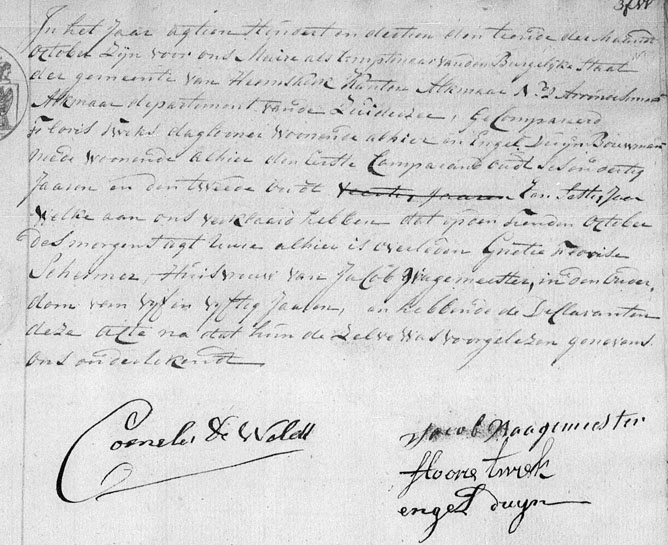 In het Jaar agtien Hondert en dertien den tiende der Maand
October Zijn voor ons Maire als Amptenaar van den Burgelijke Staat
der gemeente van Heemskerk Kanton Alkmaar N 2 Arrondissement
Alkmaar departement van de Zuiderzee, Gecompareerd
Floris Tweks dagloner woonende alhier en Engel Duijn Bouwman
mede woonende alhier den Eerste Comparant oud ses en dertig
Jaaren en den tweede oudt Veertig Jaaren Jaar
Welke aan ons verklaard hebben dat op den October
des morgens agt uure alhier is overleden Grietie Floorise
Schermer, Huisvrouw van Jacob Wagemeester, in den ouder,
dom van vijf en vijftig Jaaren, en hebbende de Declaranten
deze acte na dat hun de Zelve was voorgelezen genevens
ons onderteekendt
Cornelis De Waldt
Jacob Waagemeester
Floores twek
engel duijn